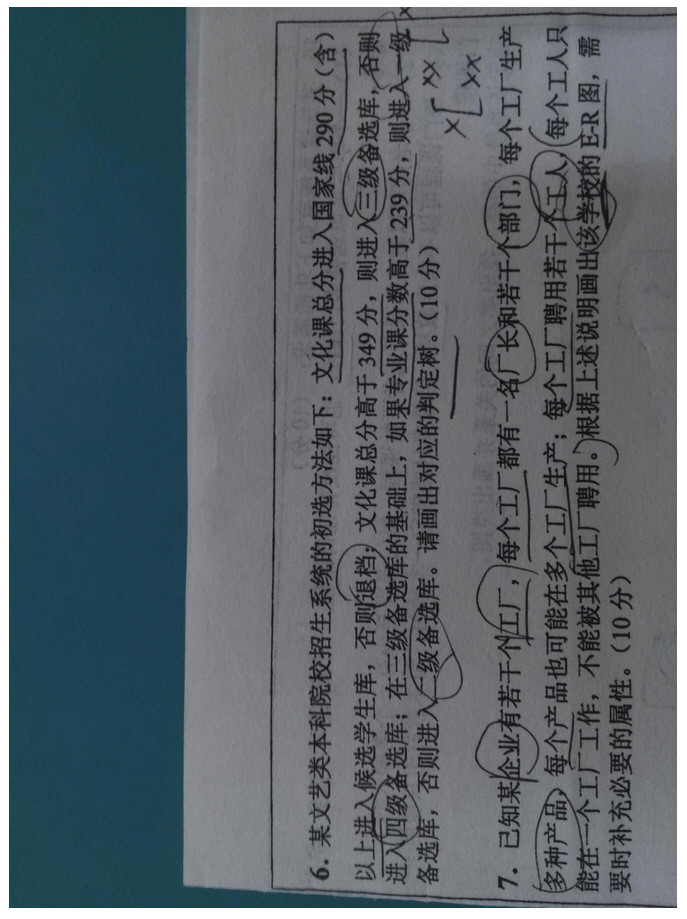 6. 某文艺类本科院校招生系统的初选方法如下：文化课总分进入国家线 290 分（含）
以上进入候选学生库，否则退档；文化课总分高于 349 分，则进入三级备选库，否则
进入四级备选库；在三级备选库的基础上，如果专业课分数高于 239 分，则进入一级
备选库，否则进入二级备选库。请画出对应的判定树。（10 分）
7. 已知某企业有若干个工厂，每个工厂都有一名厂长和若干个部门，每个工厂生产
多种产品，每个产品也可能在多个工厂生产；每个工厂聘用若干个工人，每个工人只
能在一个工厂工作，不能被其他工厂聘用。根据上述说明画出该学校的 E-R 图，需
要时补充必要的属性。（10 分）